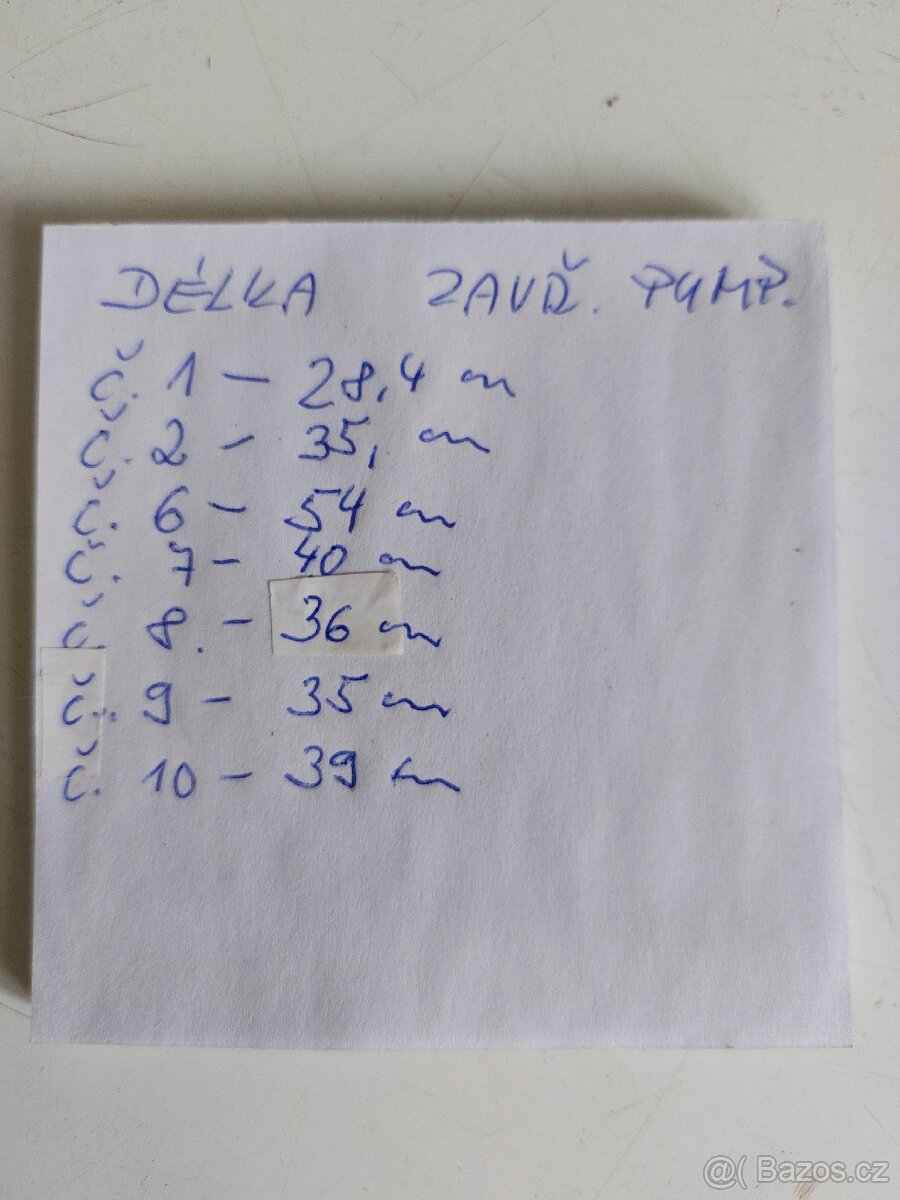 DÉLKA ZAVŘ. PUMP.
č. 1 - 28,4 cm
č. 2 - 35, cm
č. 6 - 54 cm
č. 7 - 40 cm
č. 8. - 36 cm
č.. 9 - 35 cm
č. 10 - 39 cm
@( Bazos.cz